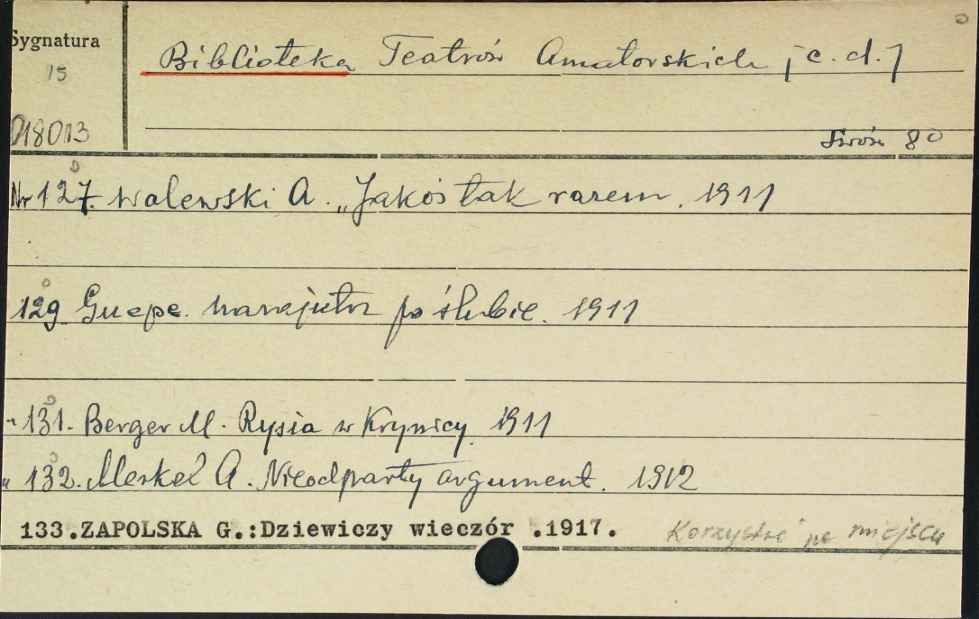 Sygnatura
15
Biblioteka Teatrów Amatorskich [c. d.]
018013
Lwów 8°
Nr 127. Walewski A. „Jakoś tak razem. 1911
129 Guepe. Nanajutrz po ślubie. 1911
" 131. Berger M. Rysia w Krynicy. 1911
" 132. Merkel A. Nieodparty argument. 1912
133.ZAPOLSKA G.:Dziewiczy wieczór .1917.
Korzystać na miejscu